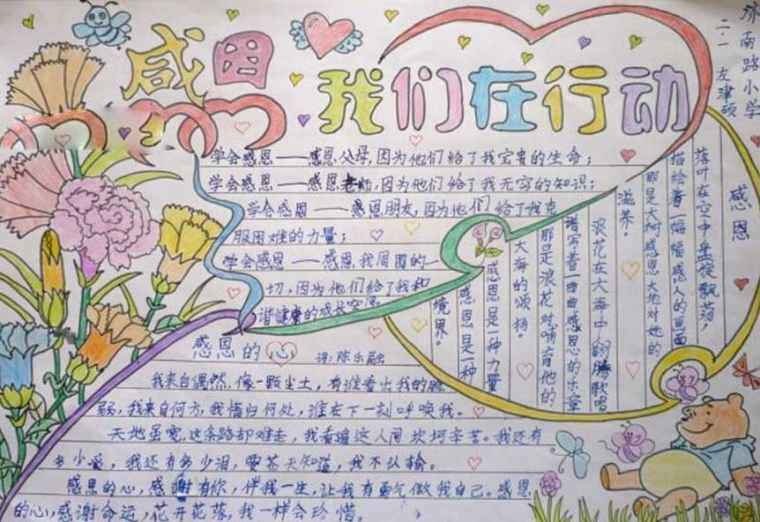 感恩
我们在行动
济南路小学
二·一 左津硕
学会感恩——感恩父母,因为他们给了我宝贵的生命;
学会感恩——感恩老师,因为他们给了我无穷的知识;
学会感恩——感恩朋友,因为他们给了我克
服困难的力量;
学会感恩——感恩我周围的一
切,因为他们给了我和
谐健康的成长空间
感恩
落叶在空中盘旋飘荡,
描绘着一幅幅感人的画面
那是大树感恩大地对她的
滋养。
浪花在大海中翩翩歌唱
谱写着一曲曲感恩的乐章
那是浪花对哺育他的
大海的颂扬。
感恩是一种力量
感恩是一种
境界。
感恩的心
词:陈乐融
我来自偶然,像一颗尘土,有谁看出我的脆
弱,我来自何方,我情归何处,谁在下一刻呼唤我。
天地虽宽,这条路却难走,我看遍这人间坎坷辛苦。我还有
多少爱,我还有多少泪,要苍天知道,我不认输。
感恩的心,感谢有你,伴我一生,让我有勇气做我自己。感恩
的心,感谢命运,花开花落,我一样会珍惜。